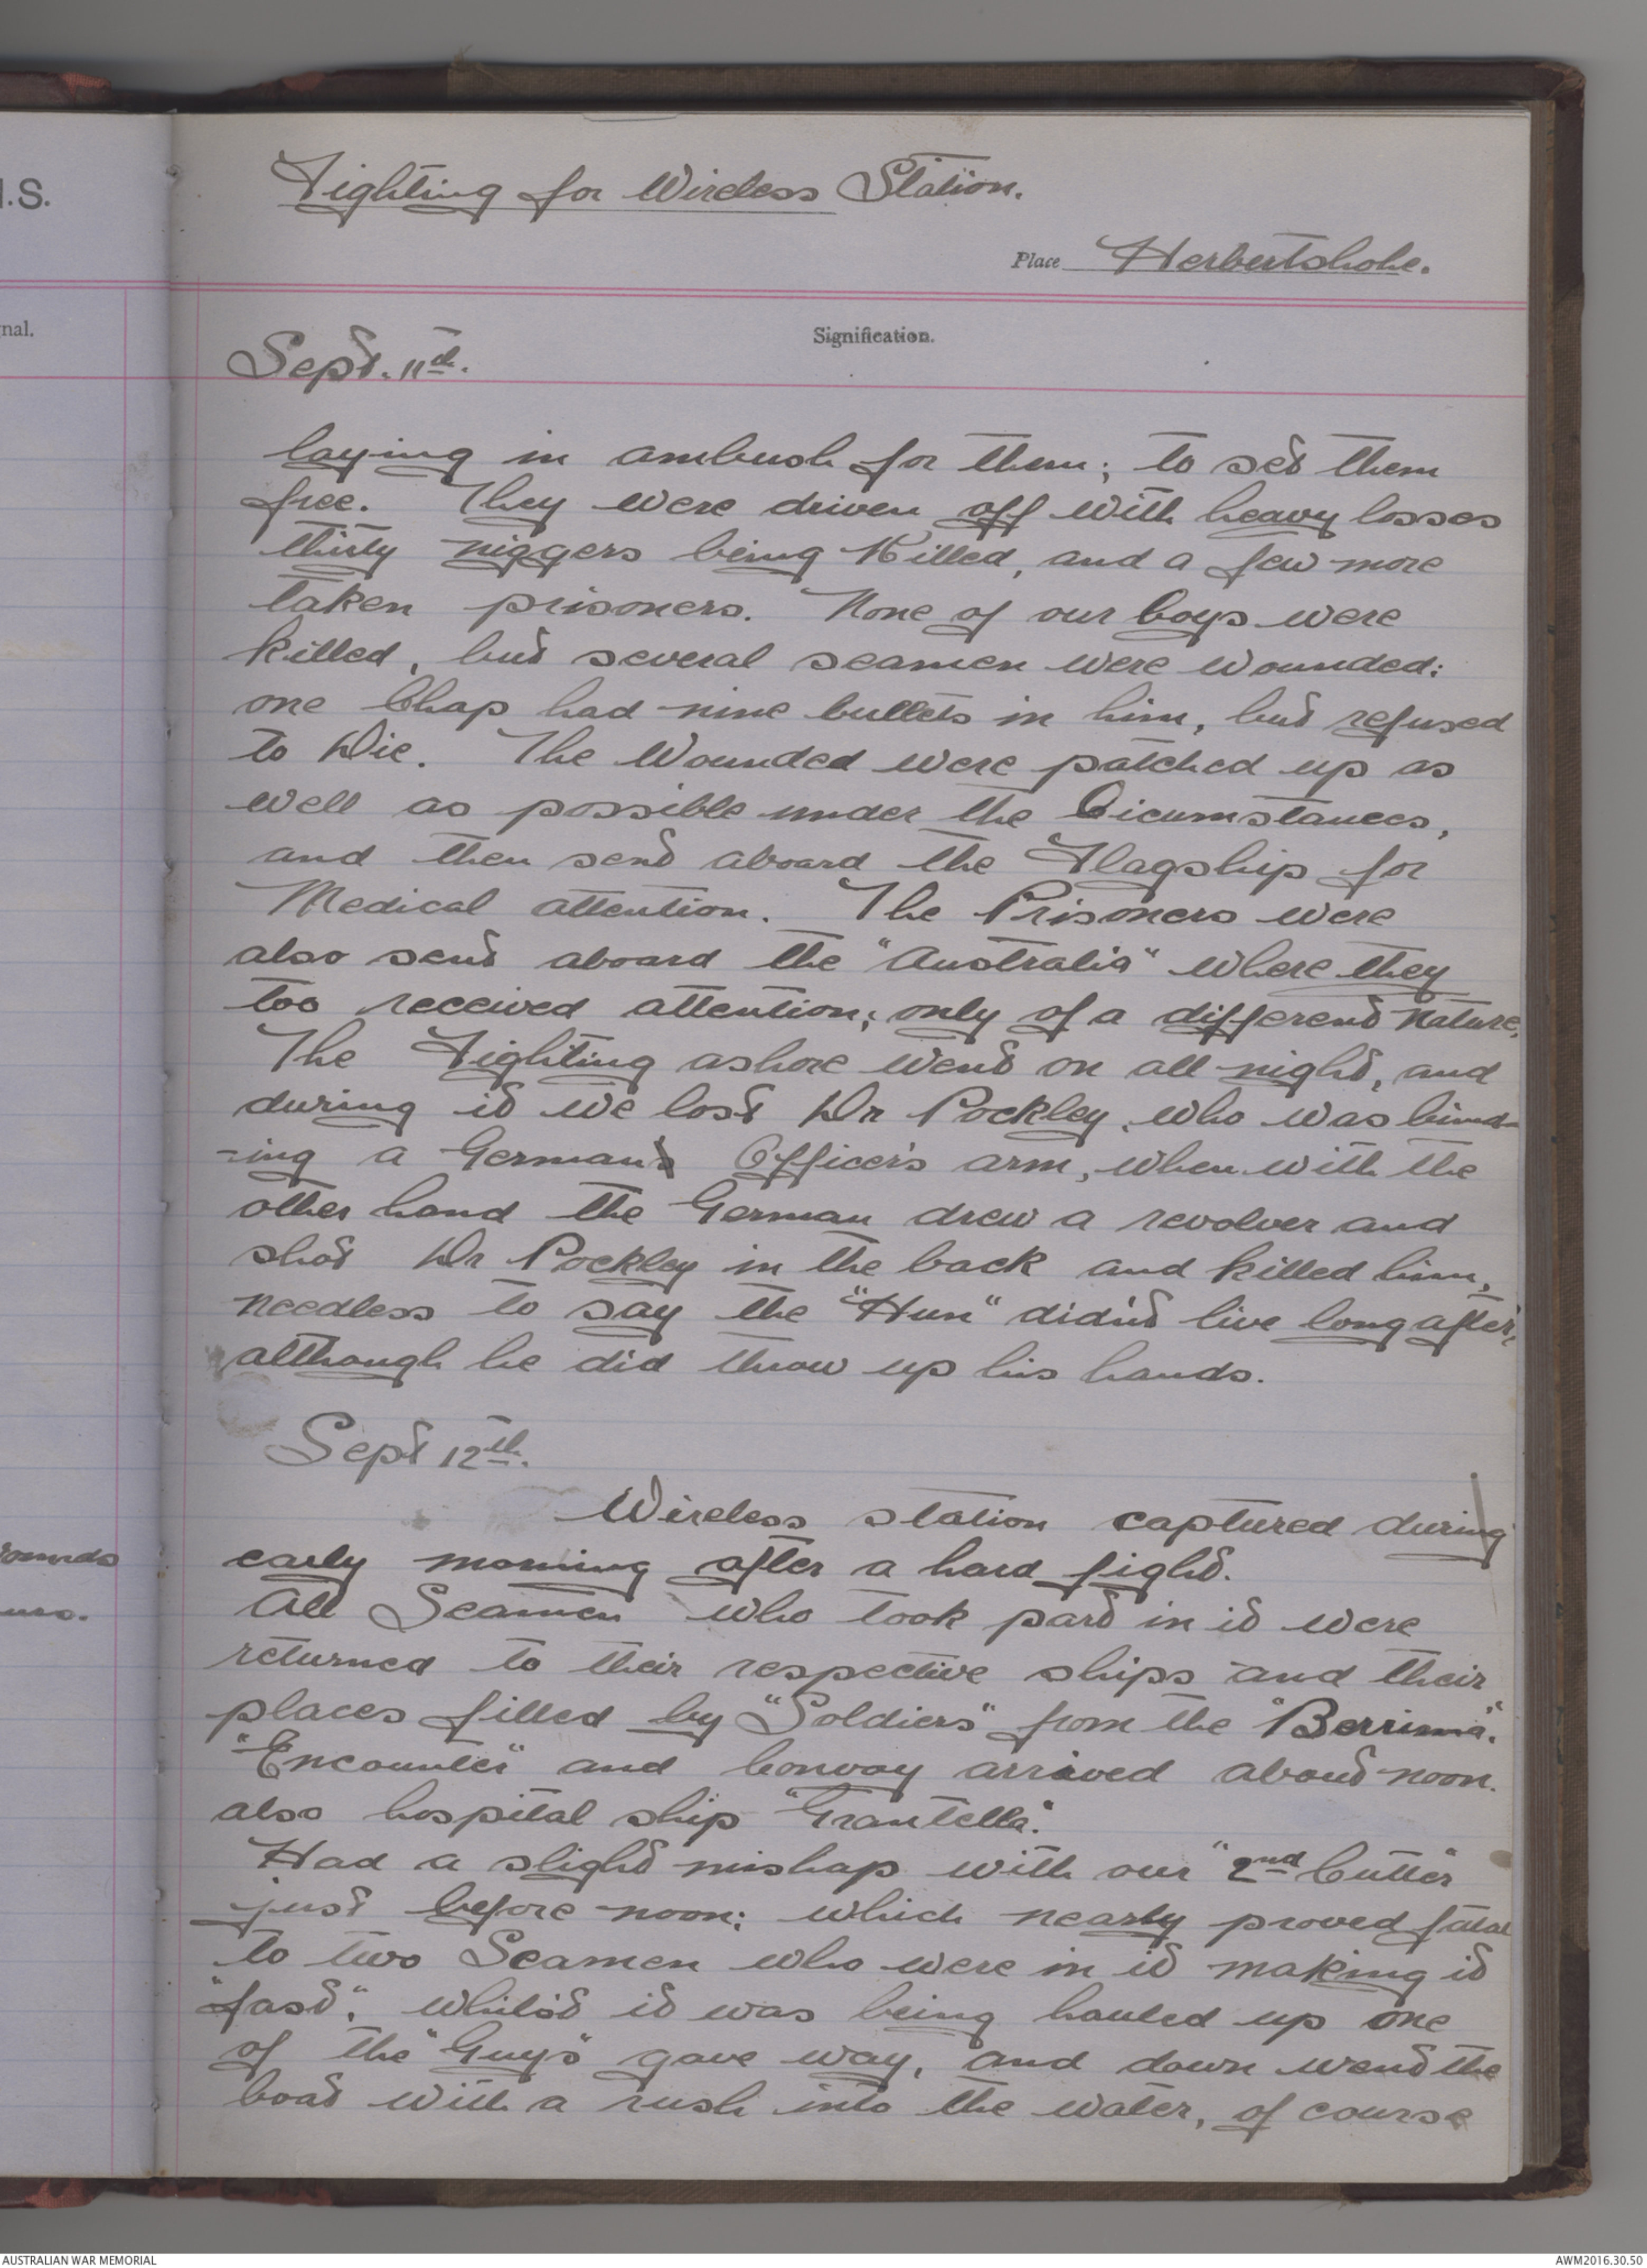 I.S.
Fighting for Wireless Station.
Place Herbertshohe.
nal.
Signification.
Sept. 11th.
laying in ambush for them; to set them
free. They were driven off with heavy losses
thirty niggers being Killed, and a few more
taken prisoners. None of our boys were
killed, but several seamen were wounded:
one Chap had nine bullets in him, but refused
to Die. The Wounded were patched up as
well as possible under the Cicumstances,
and then sent aboard the Flagship for
Medical attention. The Prisoners were
also sent aboard the "Australia" where they
too received attention; only of a different Nature.
The Fighting ashore went on all night, and
during it we lost Dr Pockley, who was bind-
-ing a German Officer's arm, when with the
other hand the German drew a revolver and
shot Dr Pockley in the back and killed him,
needless to say the "Hun" didn't live long after,
although he did throw up his hands.
Sept 12th.
Wireless station captured during
early morning after a hard fight.
All Seamen who took part in it were
returned to their respective ships and their
places filled by "Soldiers" from the "Berrima".
"Encounter" and Convoy arrived about noon.
also hospital ship "Grantella".
Had a slight mishap with our "2nd Cutter"
just before noon; which nearly proved fatal
to two Seamen who were in it making it
"fast". whilst it was being hauled up one
of the "Guys" gave way, and down went the
boat with a rush into the water, of course
AUSTRALIAN WAR MEMORIAL
AWM2016.30.50